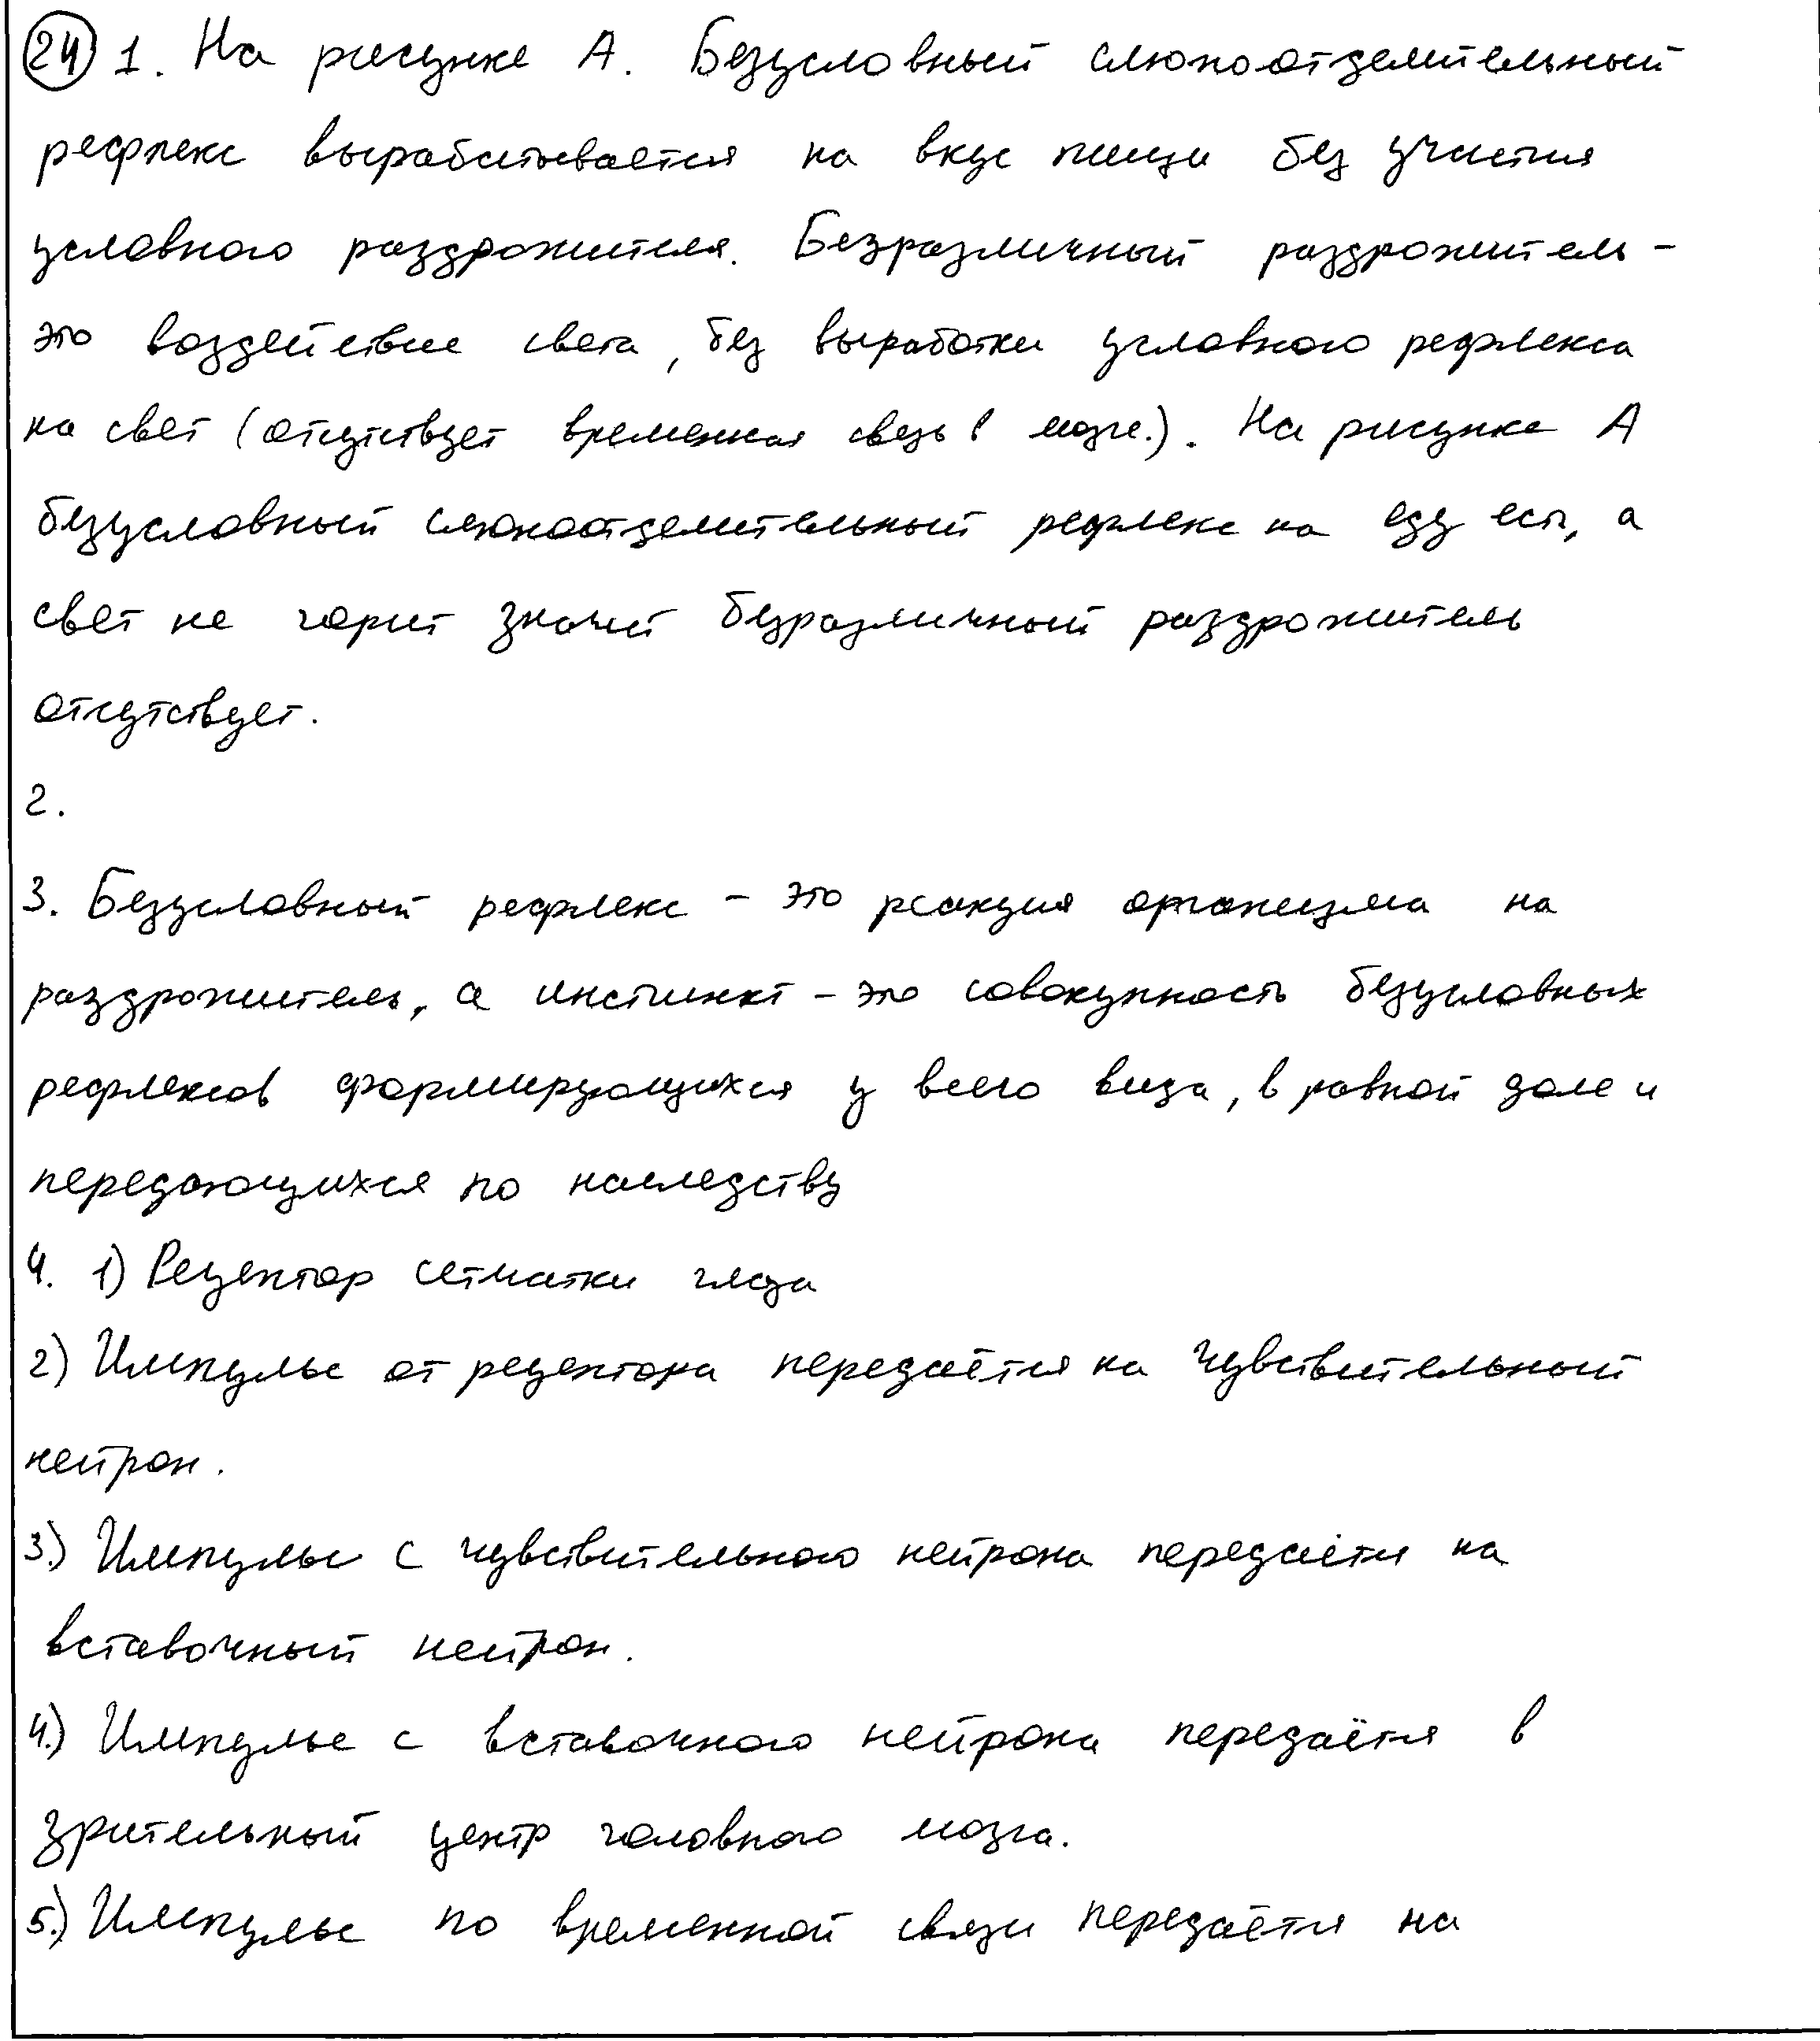 24 1. На рисунке А. Безусловный слюноотделительный
рефлекс вырабатывается на вкус пищи без участия
условного раздрожителя. Безразличный раздрожитель -
это воздействие света, без выработки условного рефлекса
на свет (отсутствует временная связь в мозге.). На рисунке А
безусловный слюноотделительный рефлекс на еду есть, а
свет не горит значит безразличный раздрожитель
отсутствует.
2.
3. Безусловный рефлекс - это реакция организма на
раздрожитель, а инстинкт - это совокупность безусловных
рефлексов формирующихся у всего вида, в равной доле и
передающихся по наследству
4. 1) Рецептор сетчатки глаза
2) Импульс от рецептора передаётся на чувствительный
нейрон.
3.) Импульс с чувствительного нейрона передаётся на
вставочный нейрон.
4.) Импульс с вставочного нейрона передаётся в
зрительный центр головного мозга.
5.) Импульс по временной связи передаётся на